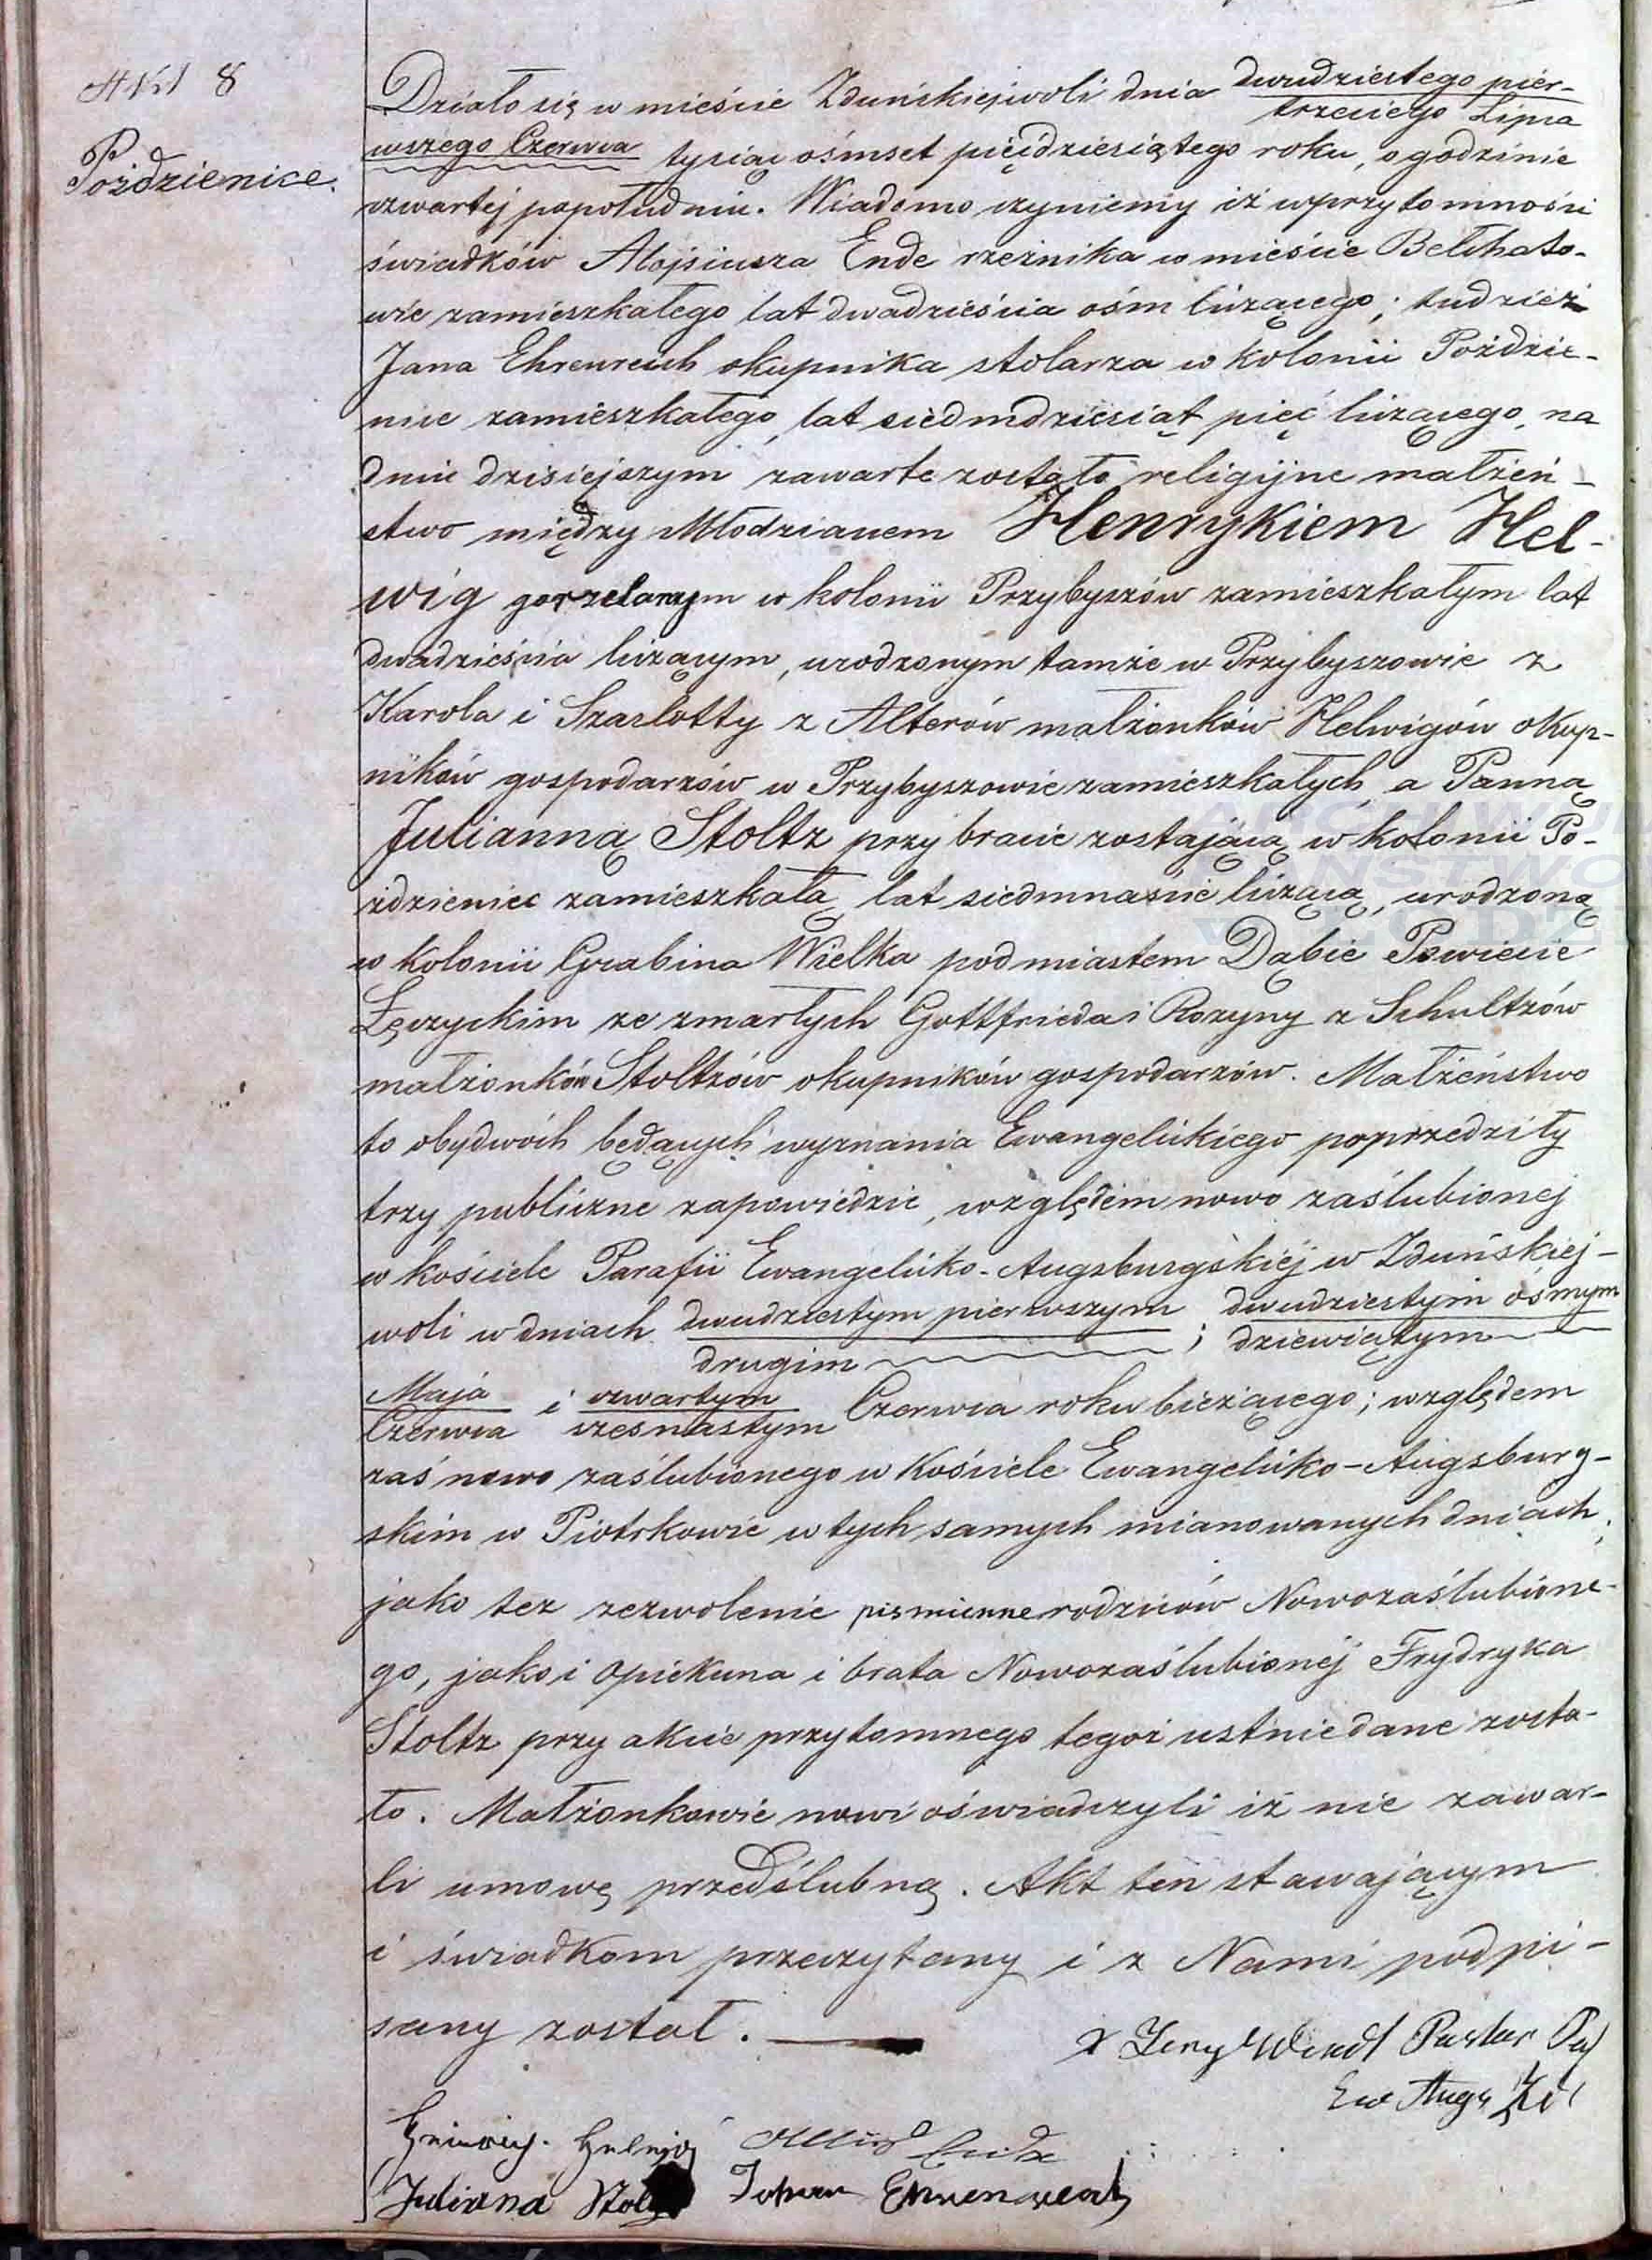 AKt 8
Pożdzienice.
Działo się w mieście Zduńskiejwoli dnia dwudziestego pier-
trzeciego Lipca
wszego Czerwca tysiąc ośmset pięćdziesiątego roku, o godzinie
czwartej popołudniu. Wiadomo czyniemy iż wprzytomności
świadków Alojsiusza Ende rzeźnika w mieście Bełchato-
wie zamieszkałego lat dwadzieścia ośm liczącego; tudzież
Jana Ehrenreich okupnika stolarza w kolonii Pożdzie-
nice zamieszkałego, lat siedmdziesiąt pięć liczącego, na
dniu dzisiejszym zawarte zostało religijne małżeń-
stwo między Młodzianem Henrykiem Hel-
wig gorzelanym w kolonii Przybyszów zamieszkałym lat
dwadzieścia liczącym, urodzonym tamże w Przybyszowie z
Karola i Szarlotty z Alterów małżonków Helwigów okup-
ników gospodarzów w Przybyszowie zamieszkałych a Panną
Julianną Stoltz przy bracie zostającą w kolonii Po-
żdzienice zamieszkałą, lat siedmnaście liczącą, urodzoną
w kolonii Grabina Wielka pod miastem Dąbie Powiecie
Łęczyckim ze zmarłych Gottfrieda i Rozyny z Schultzów
małżonków Stoltzów okupników gospodarzów. Małżeństwo
to obydwóch będących wyznania Ewangelickiego poprzedziły
trzy publiczne zapowiedzie, względem nowo zaślubionej
w kościele Parafii Ewangelicko-Augsburgskiéj w Zduńskiej-
woli w dniach dwudziestym pierwszym ; dwudziestym ósmym
drugim dziewiątym
Maja i czwartym Czerwca roku bieżącego; względem
Czerwca szesnastym
zaś nowo zaślubionego w Kościele Ewangelicko-Augsburg-
skim w Piotrkowie w tych samych mianowanych dniach;
jako tez zezwolenie pismienne rodziców Nowozaślubione-
go, jako i opiekuna i brata Nowozaślubionéj Frydryka
Stoltz przy akcie przytomnego tegoż ustnie dane zosta-
ło. Małżonkowie nowi oświadczyli iż nie zawar-
li umowę przedślubną. Akt ten stawającym
i świadkom przeczytany i z Nami podpi-
sany został.
X Jerzy Wendt Pastor Par
Ew Augs Zd
Heinrich Helwig Alois Ende
Juliana Stoltz Johann Ehrenreich